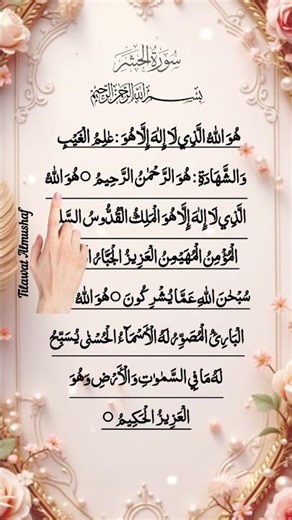 سورة الحشر
بسم الله الرحمن الرحيم
هُوَ اللهُ الَّذِي لَا إِلٰهَ إِلَّا هُوَ ۚ عٰلِمُ الْغَيْبِ
وَالشَّهَادَةِ ۚ هُوَ الرَّحْمٰنُ الرَّحِيمُ ○ هُوَ اللهُ
الَّذِي لَا إِلٰهَ إِلَّا هُوَ الْمَلِكُ الْقُدُّوسُ السَّلٰ
الْمُؤْمِنُ الْمُهَيْمِنُ الْعَزِيزُ الْجَبَّارُ الْ
سُبْحٰنَ اللهِ عَمَّا يُشْرِكُونَ ○ هُوَ اللهُ
الْبَارِئُ الْمُصَوِّرُ لَهُ الْأَسْمَاءُ الْحُسْنٰى يُسَبِّحُ
لَهُ مَا فِي السَّمٰوٰتِ وَالْأَرْضِ وَهُوَ
الْعَزِيزُ الْحَكِيمُ ○
Tilawat Almushaf